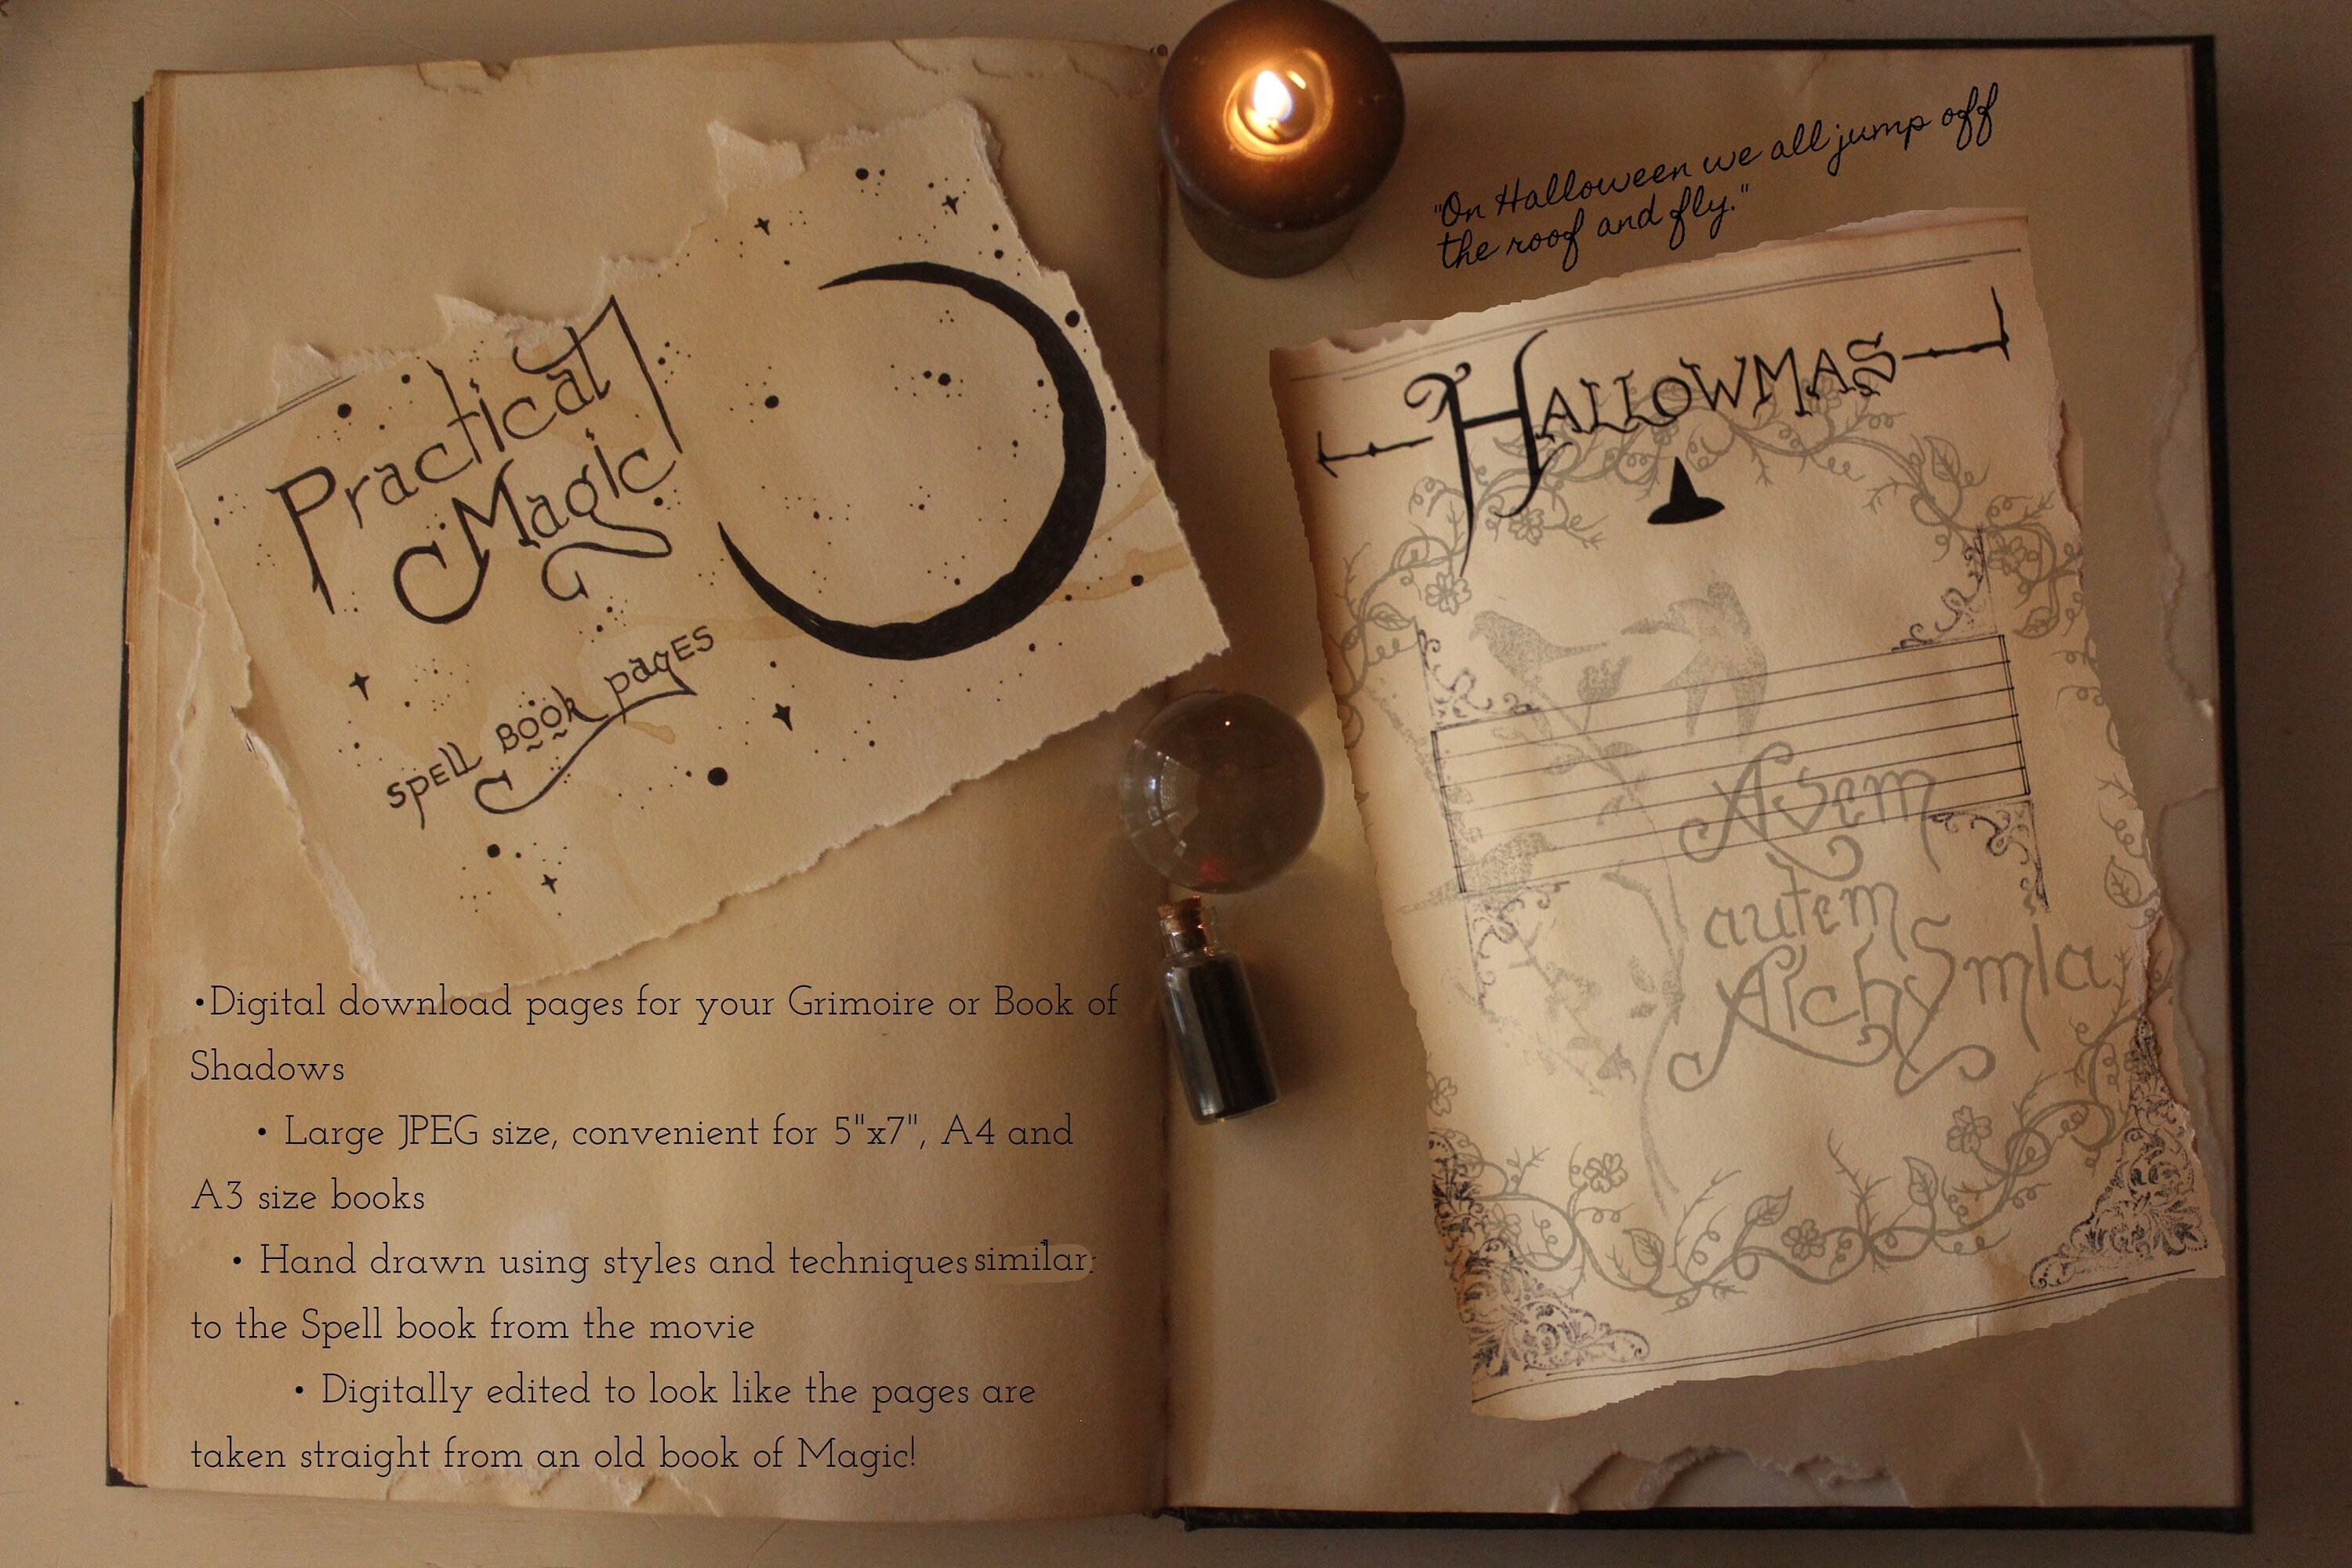 Practical
Magic
spell book pages
•Digital download pages for your Grimoire or Book of
Shadows
• Large JPEG size, convenient for 5"x7", A4 and
A3 size books
• Hand drawn using styles and techniques similar
to the Spell book from the movie
• Digitally edited to look like the pages are
taken straight from an old book of Magic!
"On Halloween we all jump off
the roof and fly."
HALLOWMAS
Asem
autem
Alchysmia